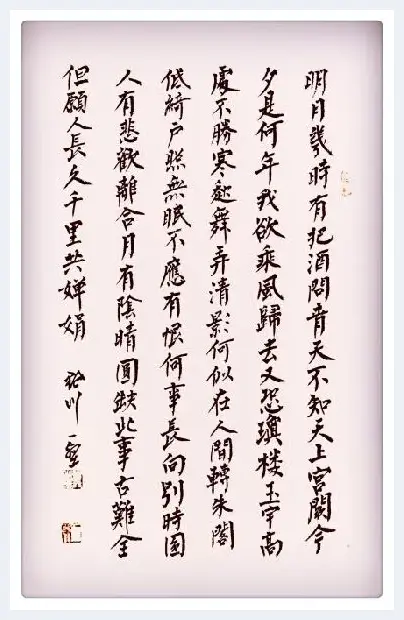 明月幾時有把酒問青天不知天上宮闕今
夕是何年我欲乘風歸去又恐瓊楼玉宇高
處不勝寒起舞弄清影何似在人間轉朱閣
低綺户照無眠不應有恨何事長向别時圓
人有悲歡離合月有陰晴圓缺此事古難全
但願人長久千里共嬋娟